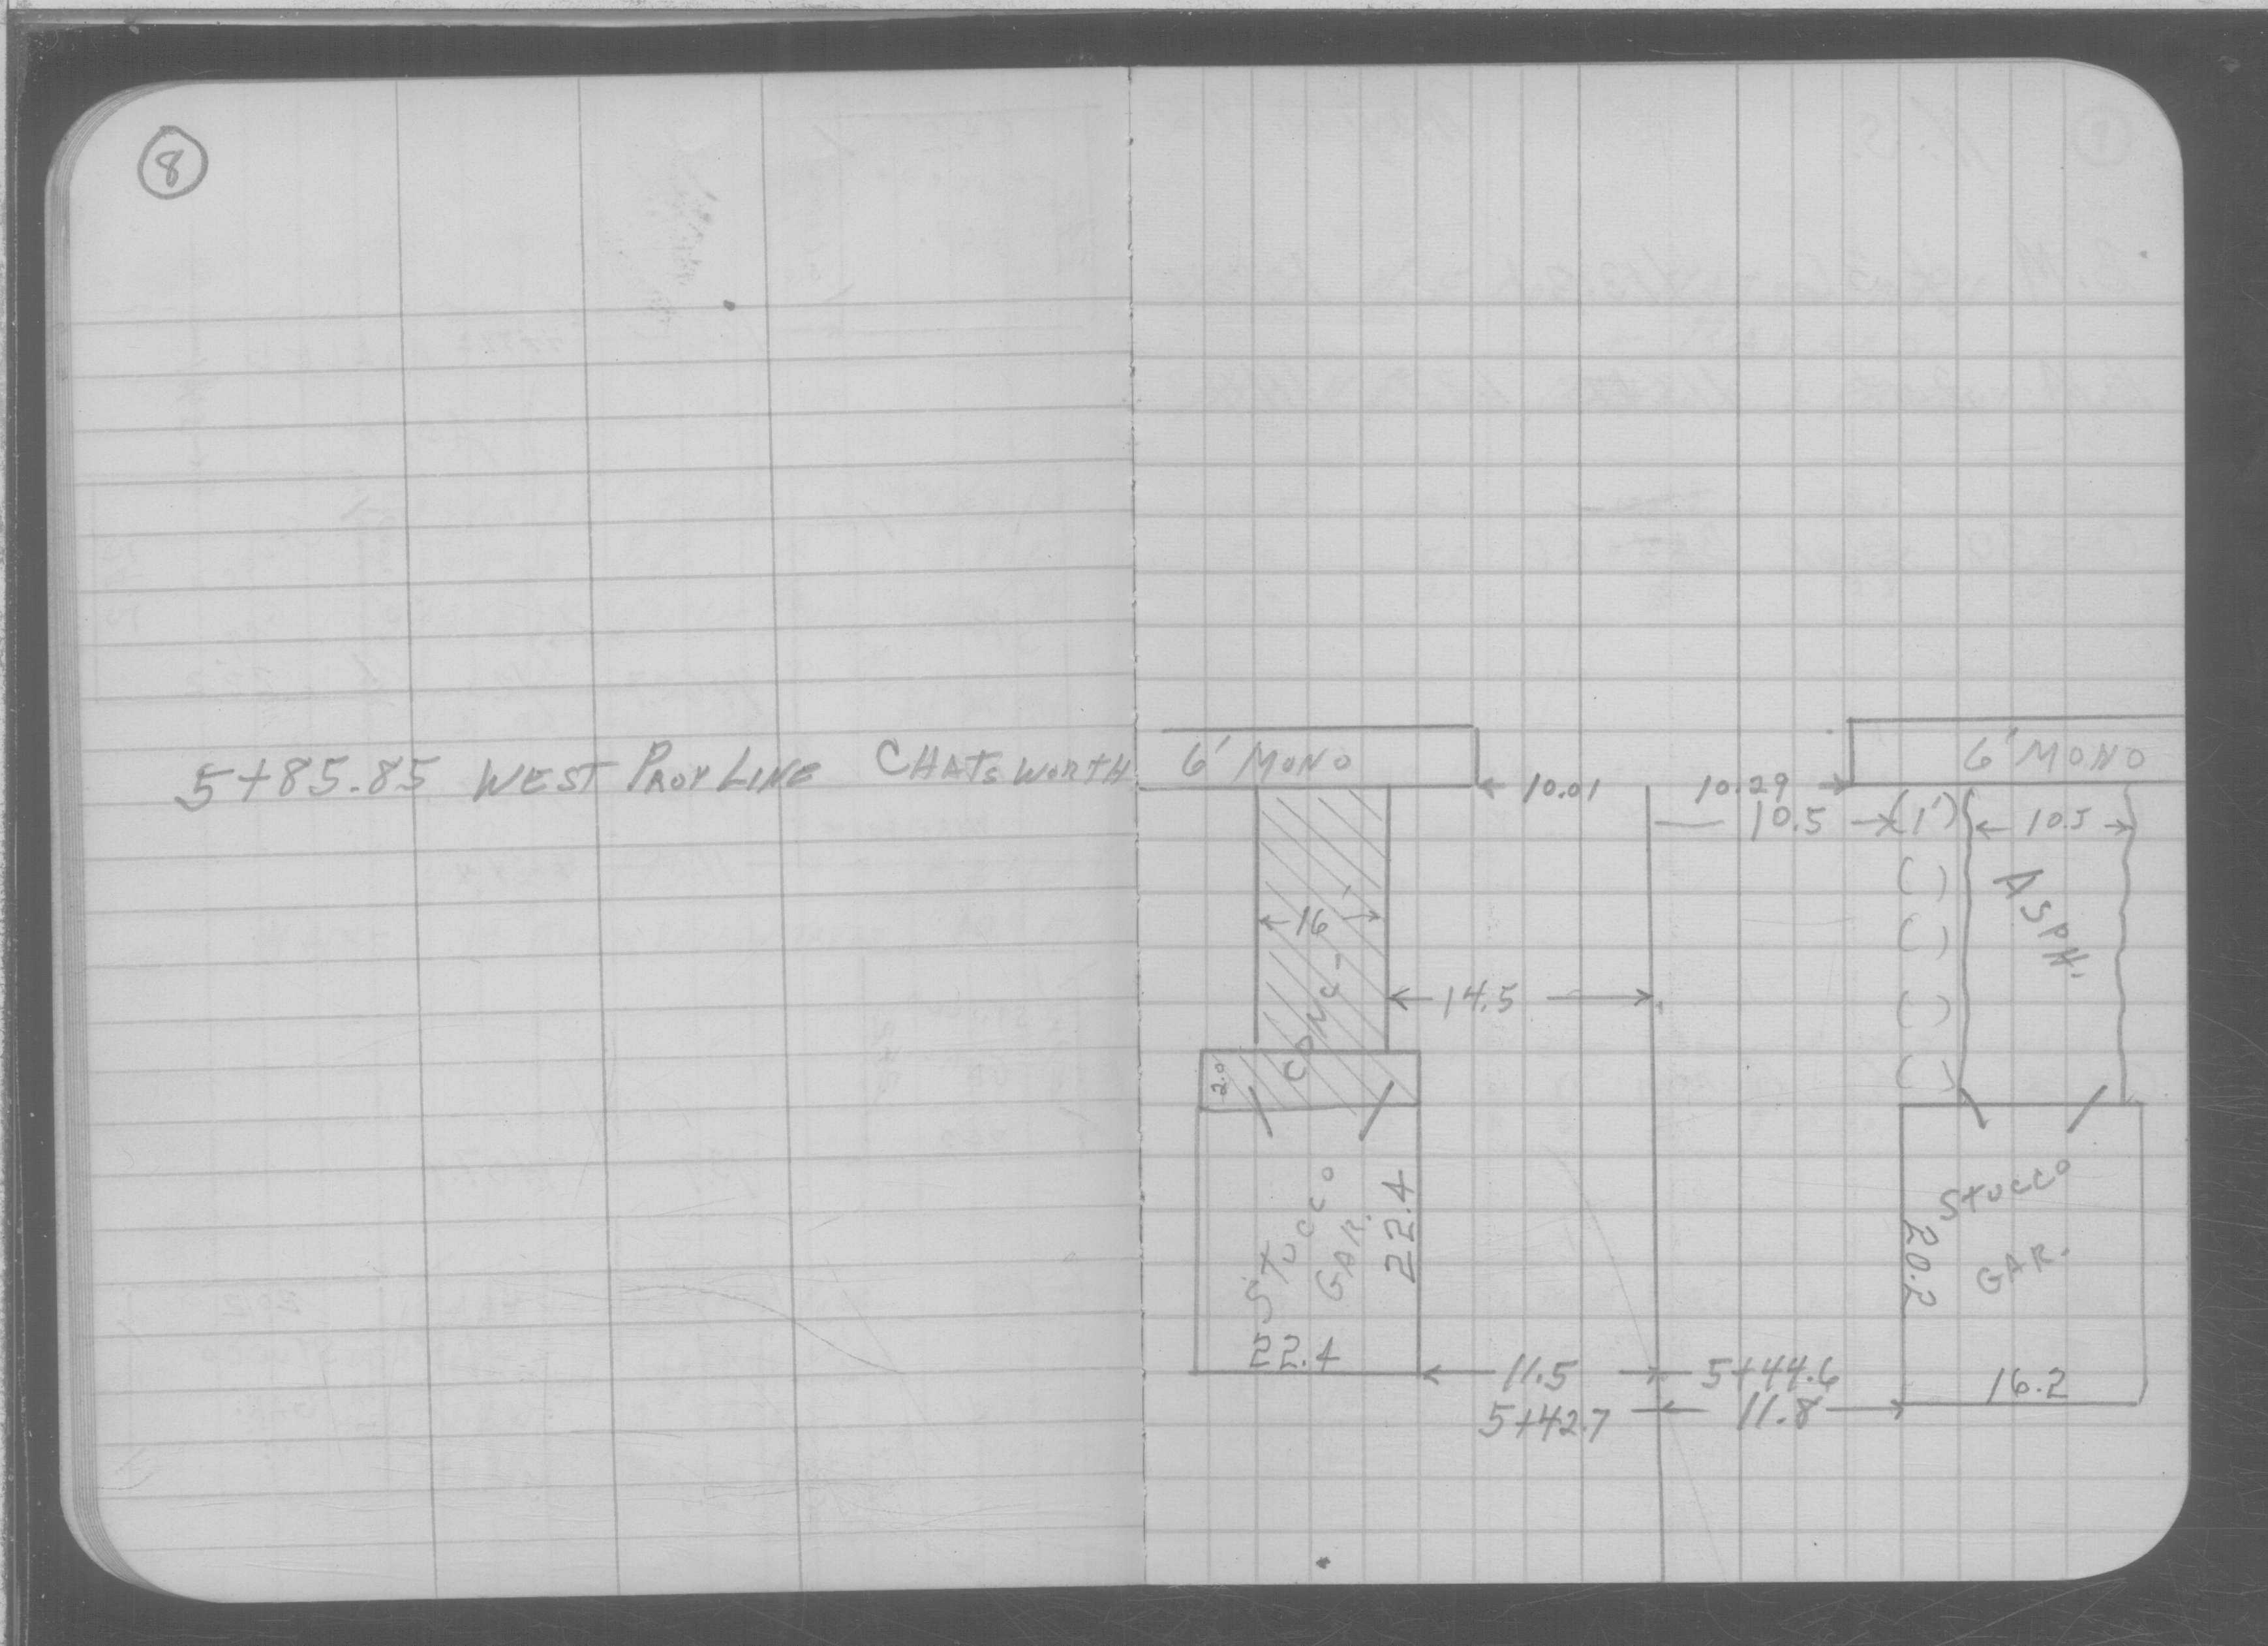 8
5+85.85 WEST PROP LINE CHATSWORTH
6' MONO
6' MONO
10.01
10.29
10.5
(1')
10.5
ASPH.
16'
14.5
CONCT
2.0
STUCCO
GAR.
22.4
22.4
STUCCO
GAR.
20.2
16.2
11.5
5+44.6
5+42.7
11.8